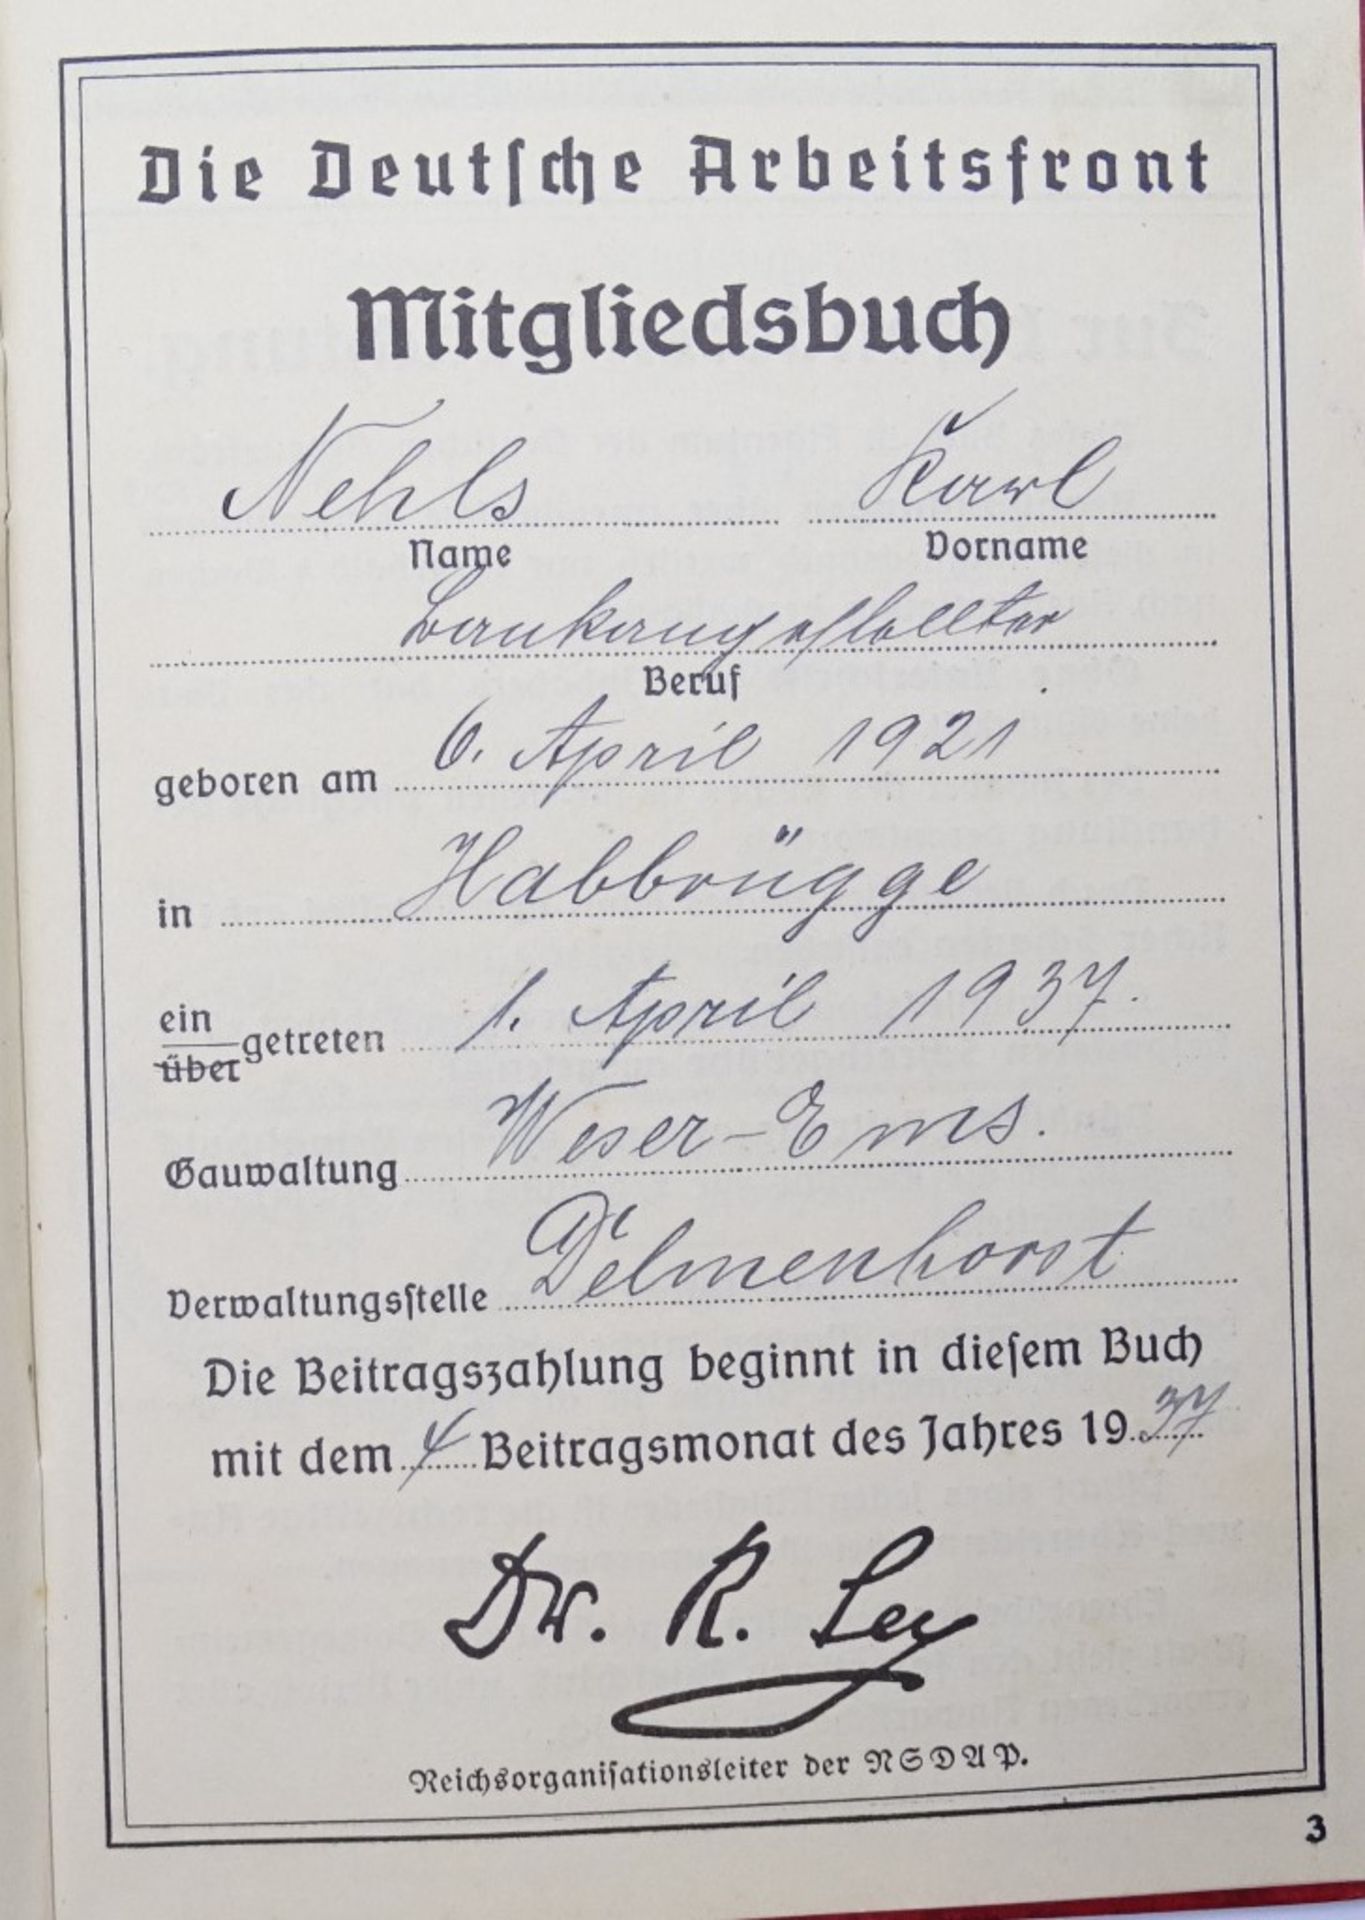 Die Deutſche Arbeitsfront
Mitgliedsbuch
Nehls Karl
Name Vorname
Bankangestellter
Beruf
geboren am 6. April 1921
in Habbrügge
ein
über getreten 1. April 1937.
Gauwaltung Weser-Ems.
Verwaltungsſtelle Delmenhorst
Die Beitragszahlung beginnt in dieſem Buch
mit dem 4 Beitragsmonat des Jahres 1937
Dr. R. Ley
Reichsorganiſationsleiter der NSDAP.
3